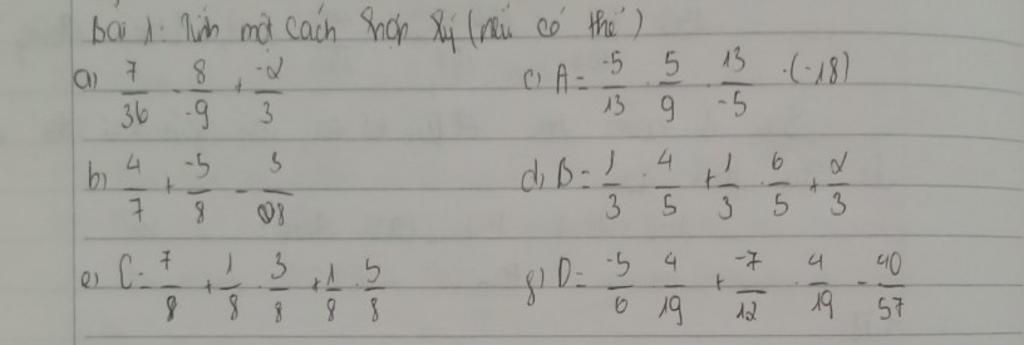 Bài 1: Tính một cách hợp lý (nếu có thể)
a) 7/36 - 8/-9 + -2/3    c) A = -5/13 · 5/9 · 13/-5 · (-18)
b) 4/7 + -5/8 - 3/28    d) B = 1/3 · 4/5 + 1/3 · 6/5 + 2/3
e) C = 7/8 + 1/8 · 3/8 + 1/8 · 5/8    g) D = -5/6 · 4/19 + -7/12 · 4/19 - 40/57